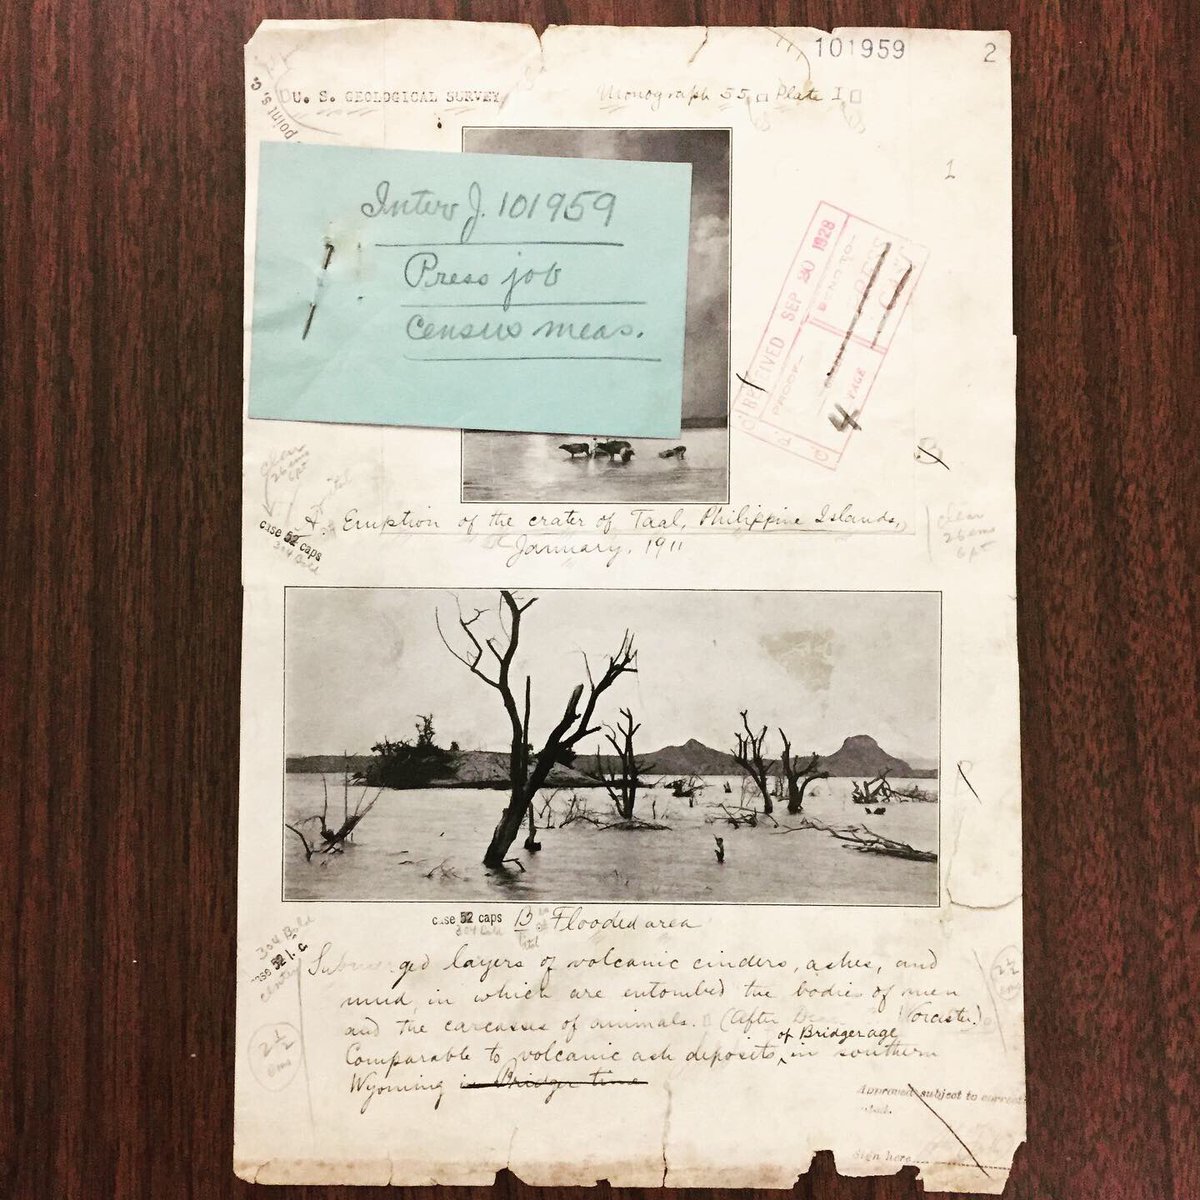 101959
2
point s. c.
U. S. GEOLOGICAL SURVEY
Monograph 55, Plate I
1
Interv J. 101959
Press job
Census meas.
RECEIVED SEP 20 1928
PROOF—
SEND TO—
4 PAGE
8
clear
26 ems
6pt
case 52 caps
304 Bold
A. Eruption of the crater of Taal, Philippine Islands,
January, 1911
clear
26 ems
6pt
case 52 caps
304 Bold
B Flooded area
304 Bold
case 52 l. c.
Submerged layers of volcanic cinders, ashes, and
mud, in which are entombed the bodies of men
and the carcasses of animals. (After Dean Worcester.)
Comparable to volcanic ash deposits, of Bridger age in southern
Wyoming in Bridger time
2 1/2
ems
2 1/2
ems
Approved subject to correct
Sign here